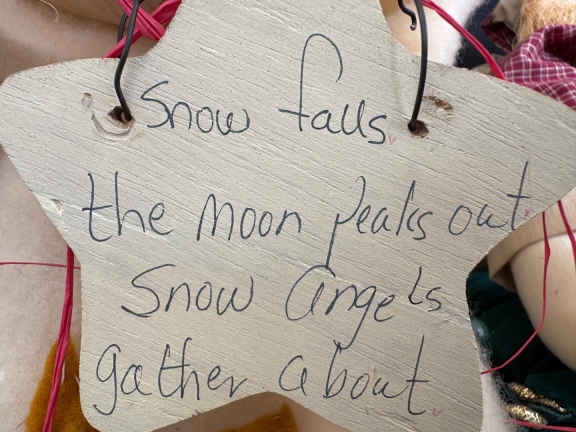 Snow falls.
the moon peaks out.
Snow Angels
gather about.